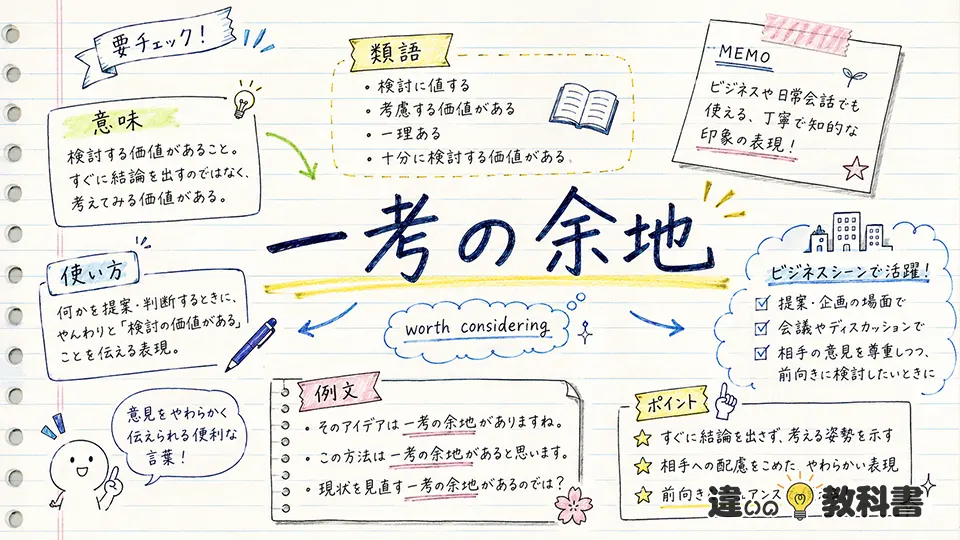 要チェック！
意味
検討する価値があること。
すぐに結論を出すのではなく、
考えてみる価値がある。
類語
・検討に値する
・考慮する価値がある
・一理ある
・十分に検討する価値がある
MEMO
ビジネスや日常会話でも
使える、丁寧で知的な
印象の表現！
一考の余地
worth considering
使い方
何かを提案・判断するときに、
やんわりと「検討の価値がある」
ことを伝える表現。
ビジネスシーンで活躍！
提案・企画の場面で
会議やディスカッションで
相手の意見を尊重しつつ、
前向きに検討したいときに
意見をやわらかく
伝えられる便利な
言葉！
例文
・そのアイデアは一考の余地がありますね。
・この方法は一考の余地があると思います。
・現状を見直す一考の余地があるのでは？
ポイント
すぐに結論を出さず、考える姿勢を示す
相手への配慮をこめた、やわらかい表現
前向き
違いの教科書